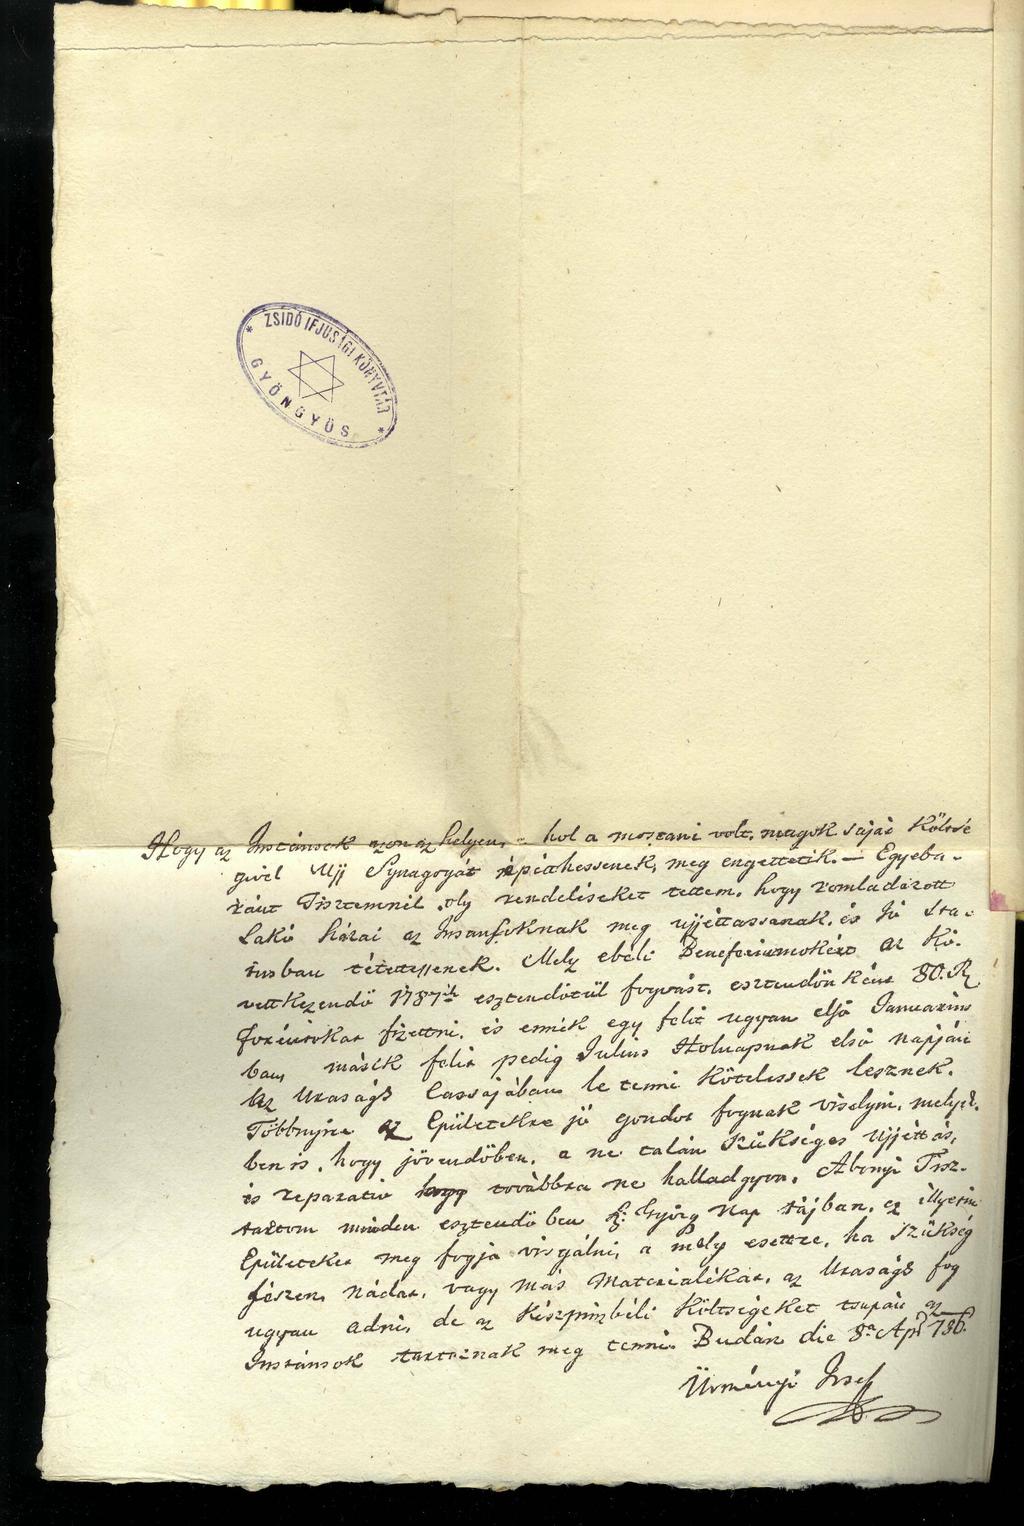 * ZSIDÓ IFJUSÁGI KÖNYVTÁR *
GYÖNGYÖS
Hogy az Instánsok azon az helyen, a hol a mostani volt, magok saját Költsé
givel Ujj Synagogát épéthessenek, meg engettetik. — Egyeba-
ránt Tisztemnél oly rendeléseket tettem, hogy romladozott
Lakó házai az Instansoknak meg ujjéttassanak, és Jó Sta-
tusban tétetessenek. Mely ebéli Beneficiumokért az Kö-
vettkezendő 1787ik esztendőtűl fogvást, esztendőn Ként 80. R
foréntokat fizettni, és ennek egy felit ugyan első Januarius
ban, másik felit pedig Julius Holnapnak első napján
az Uraságh Cassájában le tenni Kötelessek lesznek.
Többnyire az Épületekre jó gondot fognak viselyni, melyek-
ben is, hogy jövendőben, a ne talán szükséges Ujjéttás,
és reparatio továbbra ne halladgyon, Abonyi Tisz-
tartom minden esztendő ben Sz: György Nap tájban, ez illyetin
Épületeket meg fogja visgálni, a mely esettre, ha szükség
lészen, nádat, vagy más Materialékat, az Uraságh fog
ugyan adni, de az Készpinzbéli Költségeket tsupán az
Instánsok tartoznak meg tenni. Budán die 8a Apr 786.
Ürményi Josef